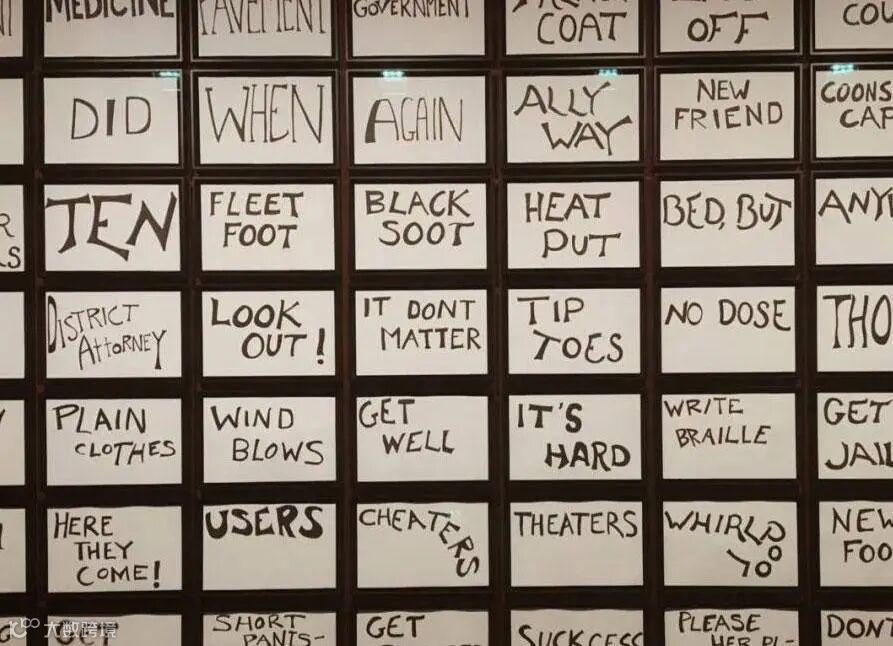 MEDICINE
PAVEMENT
GOVERNMENT
COAT
OFF
DID
WHEN
AGAIN
ALLY
WAY
NEW
FRIEND
COONS
TEN
FLEET
FOOT
BLACK
SOOT
HEAT
PUT
BED, BUT
DISTRICT
ATTORNEY
LOOK
OUT!
IT DONT
MATTER
TIP
TOES
NO DOSE
PLAIN
CLOTHES
WIND
BLOWS
GET
WELL
IT'S
HARD
WRITE
BRAILLE
GET
JAIL
HERE
THEY
COME!
USERS
CHEATERS
THEATERS
WHIRLPOOL
NEW
SHORT
PANTS-
GET
SUCKCESS
PLEASE
HER PL-
DONT
大数跨境